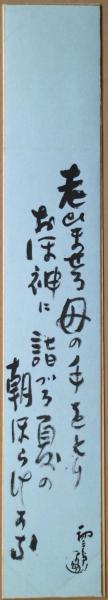 老いませる母の手をとり
おほ神に詣づる夏の
朝ほらけかな